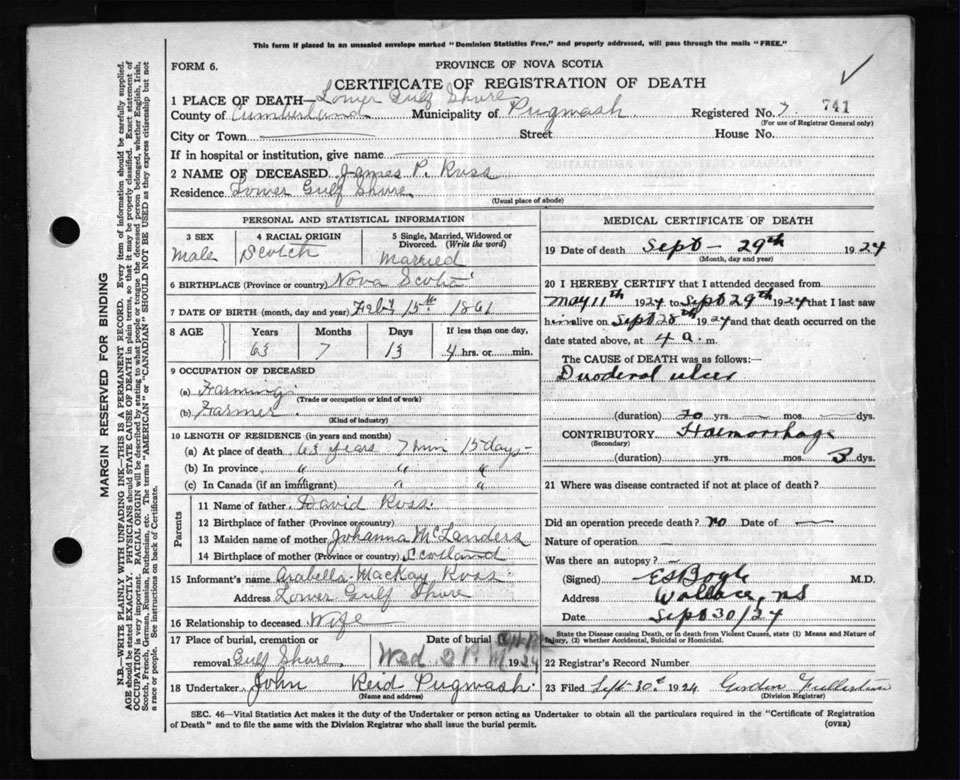 This form if placed in an unsealed envelope marked "Dominion Statistics Free," and properly addressed, will pass through the mails "FREE."
FORM 6.
PROVINCE OF NOVA SCOTIA
CERTIFICATE OF REGISTRATION OF DEATH
1 PLACE OF DEATH— Lower Gulf Shore
County of Cumberland Municipality of Pugwash Registered No. 7 741
(For use of Registrar General only)
City or Town Street House No.
If in hospital or institution, give name
2 NAME OF DECEASED James P. Ross
Residence Lower Gulf Shore
(Usual place of abode)
PERSONAL AND STATISTICAL INFORMATION
3 SEX 4 RACIAL ORIGIN 5 Single, Married, Widowed or
Divorced. (Write the word)
Male Scotch Married
6 BIRTHPLACE (Province or country) Nova Scotia
7 DATE OF BIRTH (month, day and year) Feby 15th 1861
8 AGE Years Months Days If less than one day,
63 7 13 4 hrs. or min.
9 OCCUPATION OF DECEASED
(a) Farming
(Trade or occupation or kind of work)
(b) Farmer
(Kind of industry)
10 LENGTH OF RESIDENCE (in years and months)
(a) At place of death 63 years 7 mon 15 days
(b) In province " " "
(c) In Canada (if an immigrant) " "
Parents
11 Name of father David Ross
12 Birthplace of father (Province or country)
13 Maiden name of mother Johanna McLanders
14 Birthplace of mother (Province or country) Scotland
15 Informant's name Arabella MacKay Ross
Address Lower Gulf Shore
16 Relationship to deceased Wife
17 Place of burial, cremation or Date of burial
removal Gulf Shore Wed 2 P.M 1924
18 Undertaker John Reid Pugwash
(Name and address)
MEDICAL CERTIFICATE OF DEATH
19 Date of death Sept — 29th 1924
(Month, day and year)
20 I HEREBY CERTIFY that I attended deceased from
May 11th 1924 to Sept 29th 1924 that I last saw
him alive on Sept 28th 1924 and that death occurred on the
date stated above, at 4 a. m.
The CAUSE of DEATH was as follows:
Duoderal ulcer
(duration) 20 yrs. — mos. — dys.
CONTRIBUTORY Haemorrhage
(Secondary)
(duration) yrs. mos. 3 dys.
21 Where was disease contracted if not at place of death?
Did an operation precede death? no Date of —
Nature of operation —
Was there an autopsy? —
(Signed) E S Bogle M.D.
Address Wallace, NS
Date Sept 30/24
State the Disease causing Death, or in death from Violent Causes, state (1) Means and Nature of
Injury, (2) whether Accidental, Suicidal or Homicidal.
22 Registrar's Record Number
23 Filed Sept 30th 1924 Gordon Fullerton
(Division Registrar)
SEC. 46—Vital Statistics Act makes it the duty of the Undertaker or person acting as Undertaker to obtain all the particulars required in the "Certificate of Registration
of Death" and to file the same with the Division Registrar who shall issue the burial permit. (OVER)
MARGIN RESERVED FOR BINDING
N.B.—WRITE PLAINLY WITH UNFADING INK—THIS IS A PERMANENT RECORD. Every item of information should be carefully supplied.
AGE should be stated EXACTLY. PHYSICIANS should STATE CAUSE OF DEATH in plain terms, so that it may be properly classified. Exact statement of
OCCUPATION is very important. RACIAL ORIGIN will be described by stating to what people or tongue the deceased person belonged, whether English, Irish,
Scotch, French, German, Russian, Ruthenian, etc. The terms "AMERICAN" or "CANADIAN" SHOULD NOT BE USED as they express citizenship but not
a race or people. See instructions on back of Certificate.